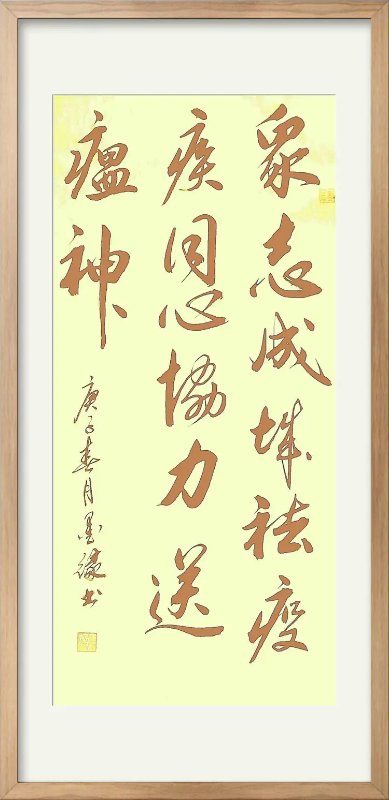 眾志成城祛疫
疾同心協力送
瘟神
庚子春月墨緣书